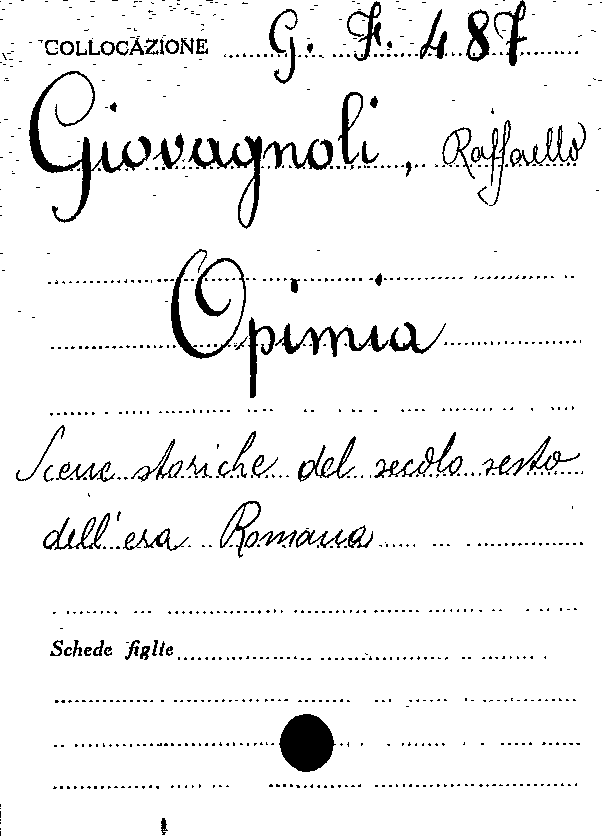 COLLOCAZIONE G. F. 487
Giovagnoli, Raffaello
Opimia
Scene storiche del secolo sesto
dell'era Romana
Schede figlie